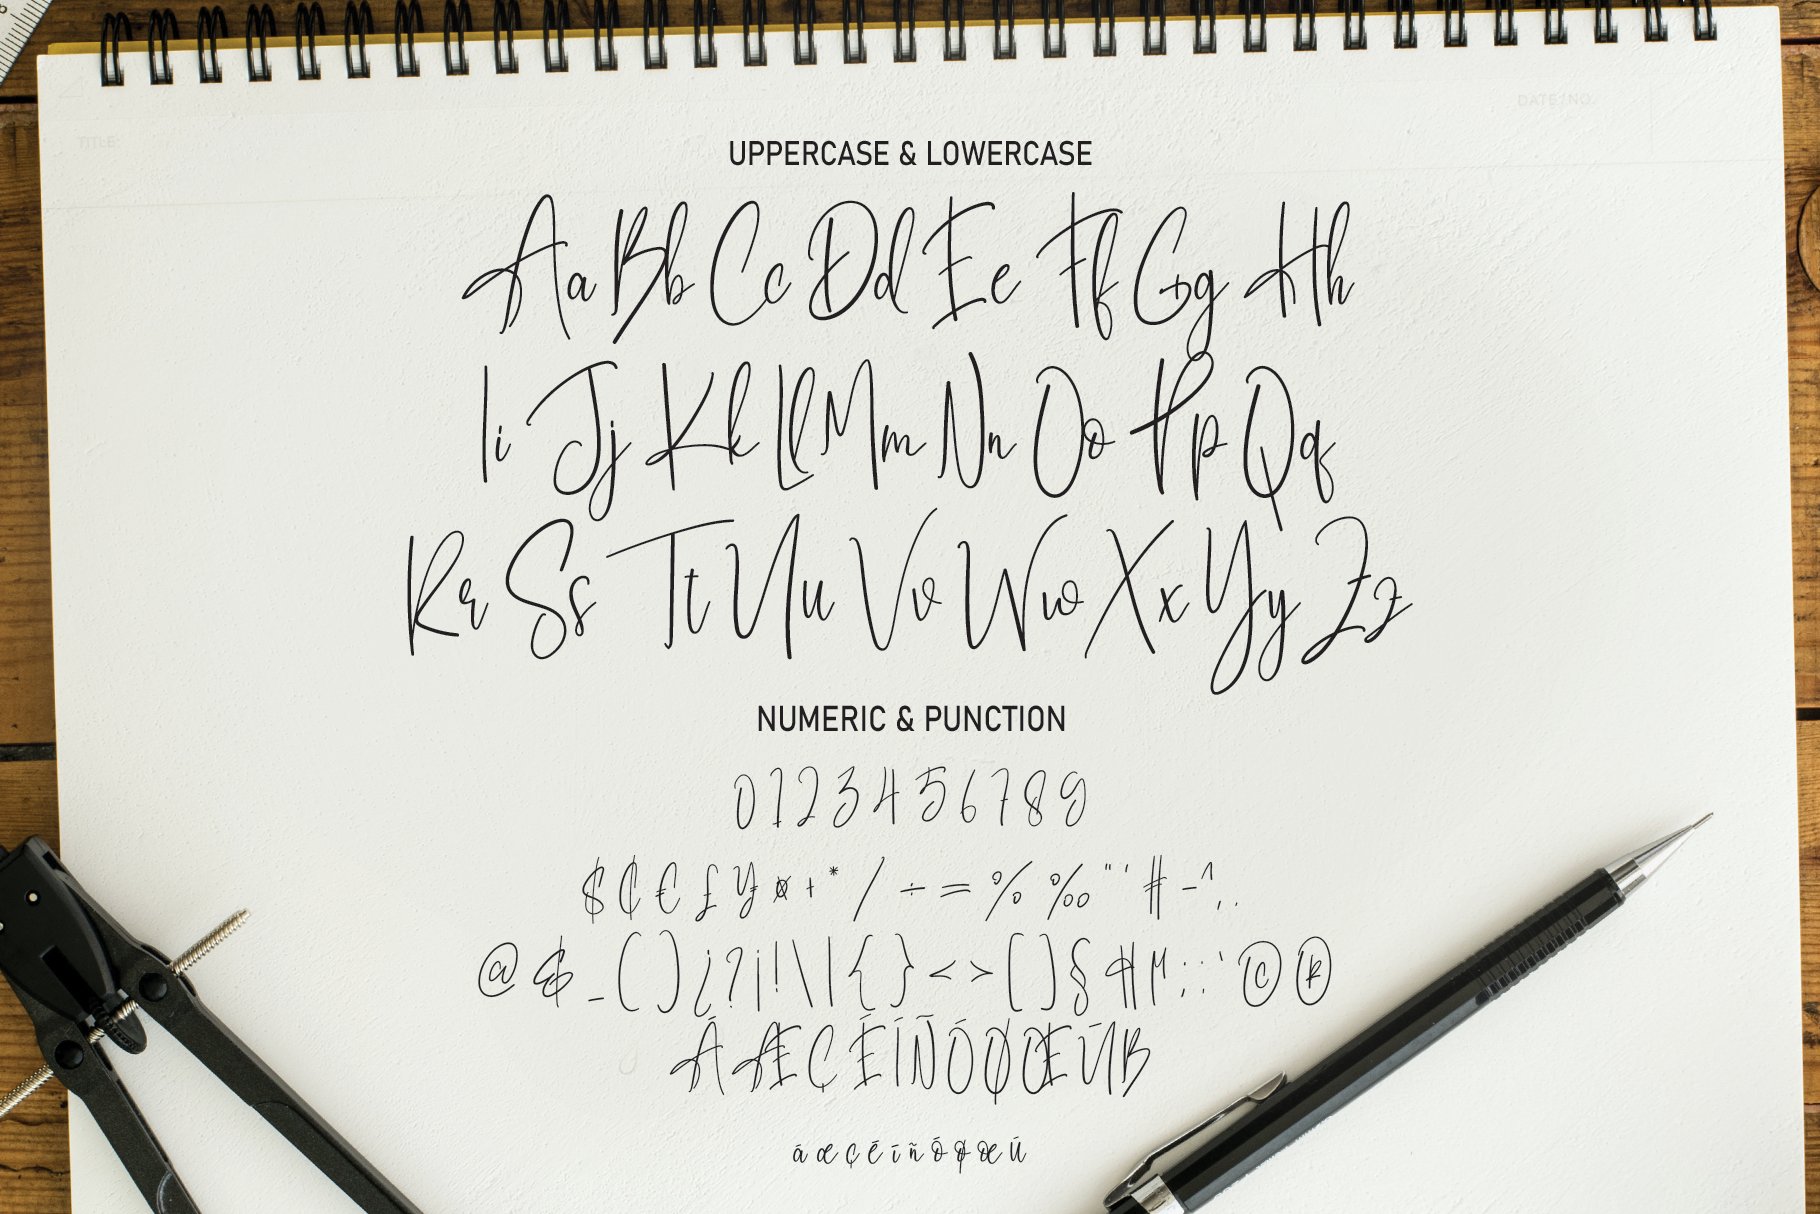 DATE/NO.
TITLE:
UPPERCASE & LOWERCASE
Aa Bb Cc Dd Ee Ff Gg Hh
Ii Jj Kk Ll Mm Nn Oo Pp Qq
Rr Ss Tt Uu Vv Ww Xx Yy Zz
NUMERIC & PUNCTION
0 1 2 3 4 5 6 7 8 9
$ ₵ € £ ¥ ¤ + * / ÷ = % ‰ " ' # - ^ , .
@ & _ ( ) ¿ ? ¡ ! \ | { } < > [ ] § ₶ : ; ' © ®
Á Æ Ç É Í Ñ Ó Ø Œ Ú ß
á æ ç é í ñ ó ø œ ú